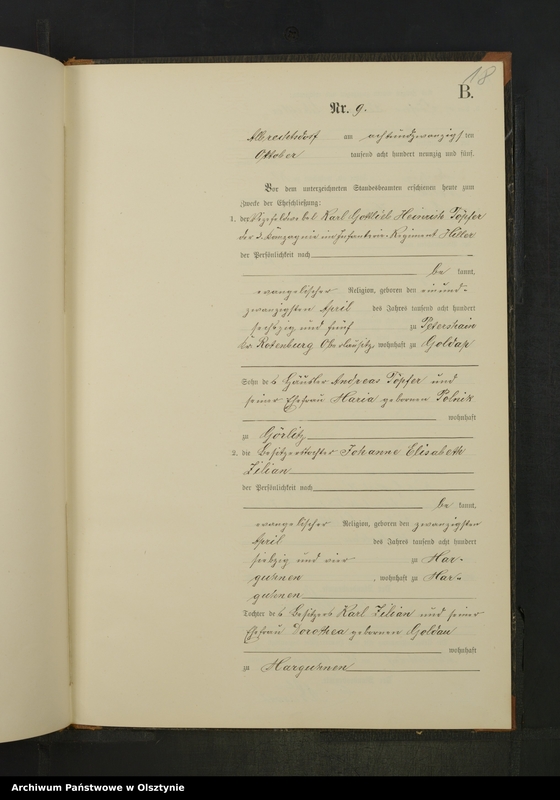 18
B.
Nr. 9.
Albrechtsdorf am achtundzwanzigsten
Oktober tausend acht hundert neunzig und fünf.
Vor dem unterzeichneten Standesbeamten erschienen heute zum
Zwecke der Eheschließung:
1. der Vizefeldwebel Karl Gottlieb Heinrich Töpfer
der 3. Kompagnie im Infanterie-Regiment Hiller
der Persönlichkeit nach
be kannt,
evangelischer Religion, geboren den einund-
zwanzigsten April des Jahres tausend acht hundert
sechszig und fünf zu Petershain
Kr. Rotenburg Oberlausitz, wohnhaft zu Goldap
Sohn des Häusler Andreas Töpfer und
seiner Ehefrau Maria geborenen Polnik
wohnhaft
zu Görlitz
2. die Besitzertochter Johanne Elisabeth
Zilian
der Persönlichkeit nach
be kannt,
evangelischer Religion, geboren den zwanzigsten
April des Jahres tausend acht hundert
siebzig und vier zu Har-
guhnen, wohnhaft zu Har-
guhnen
Tochter des Besitzers Karl Zilian und seiner
Ehefrau Dorothea geborenen Goldau
wohnhaft
zu Harguhnen
Archiwum Państwowe w Olsztynie